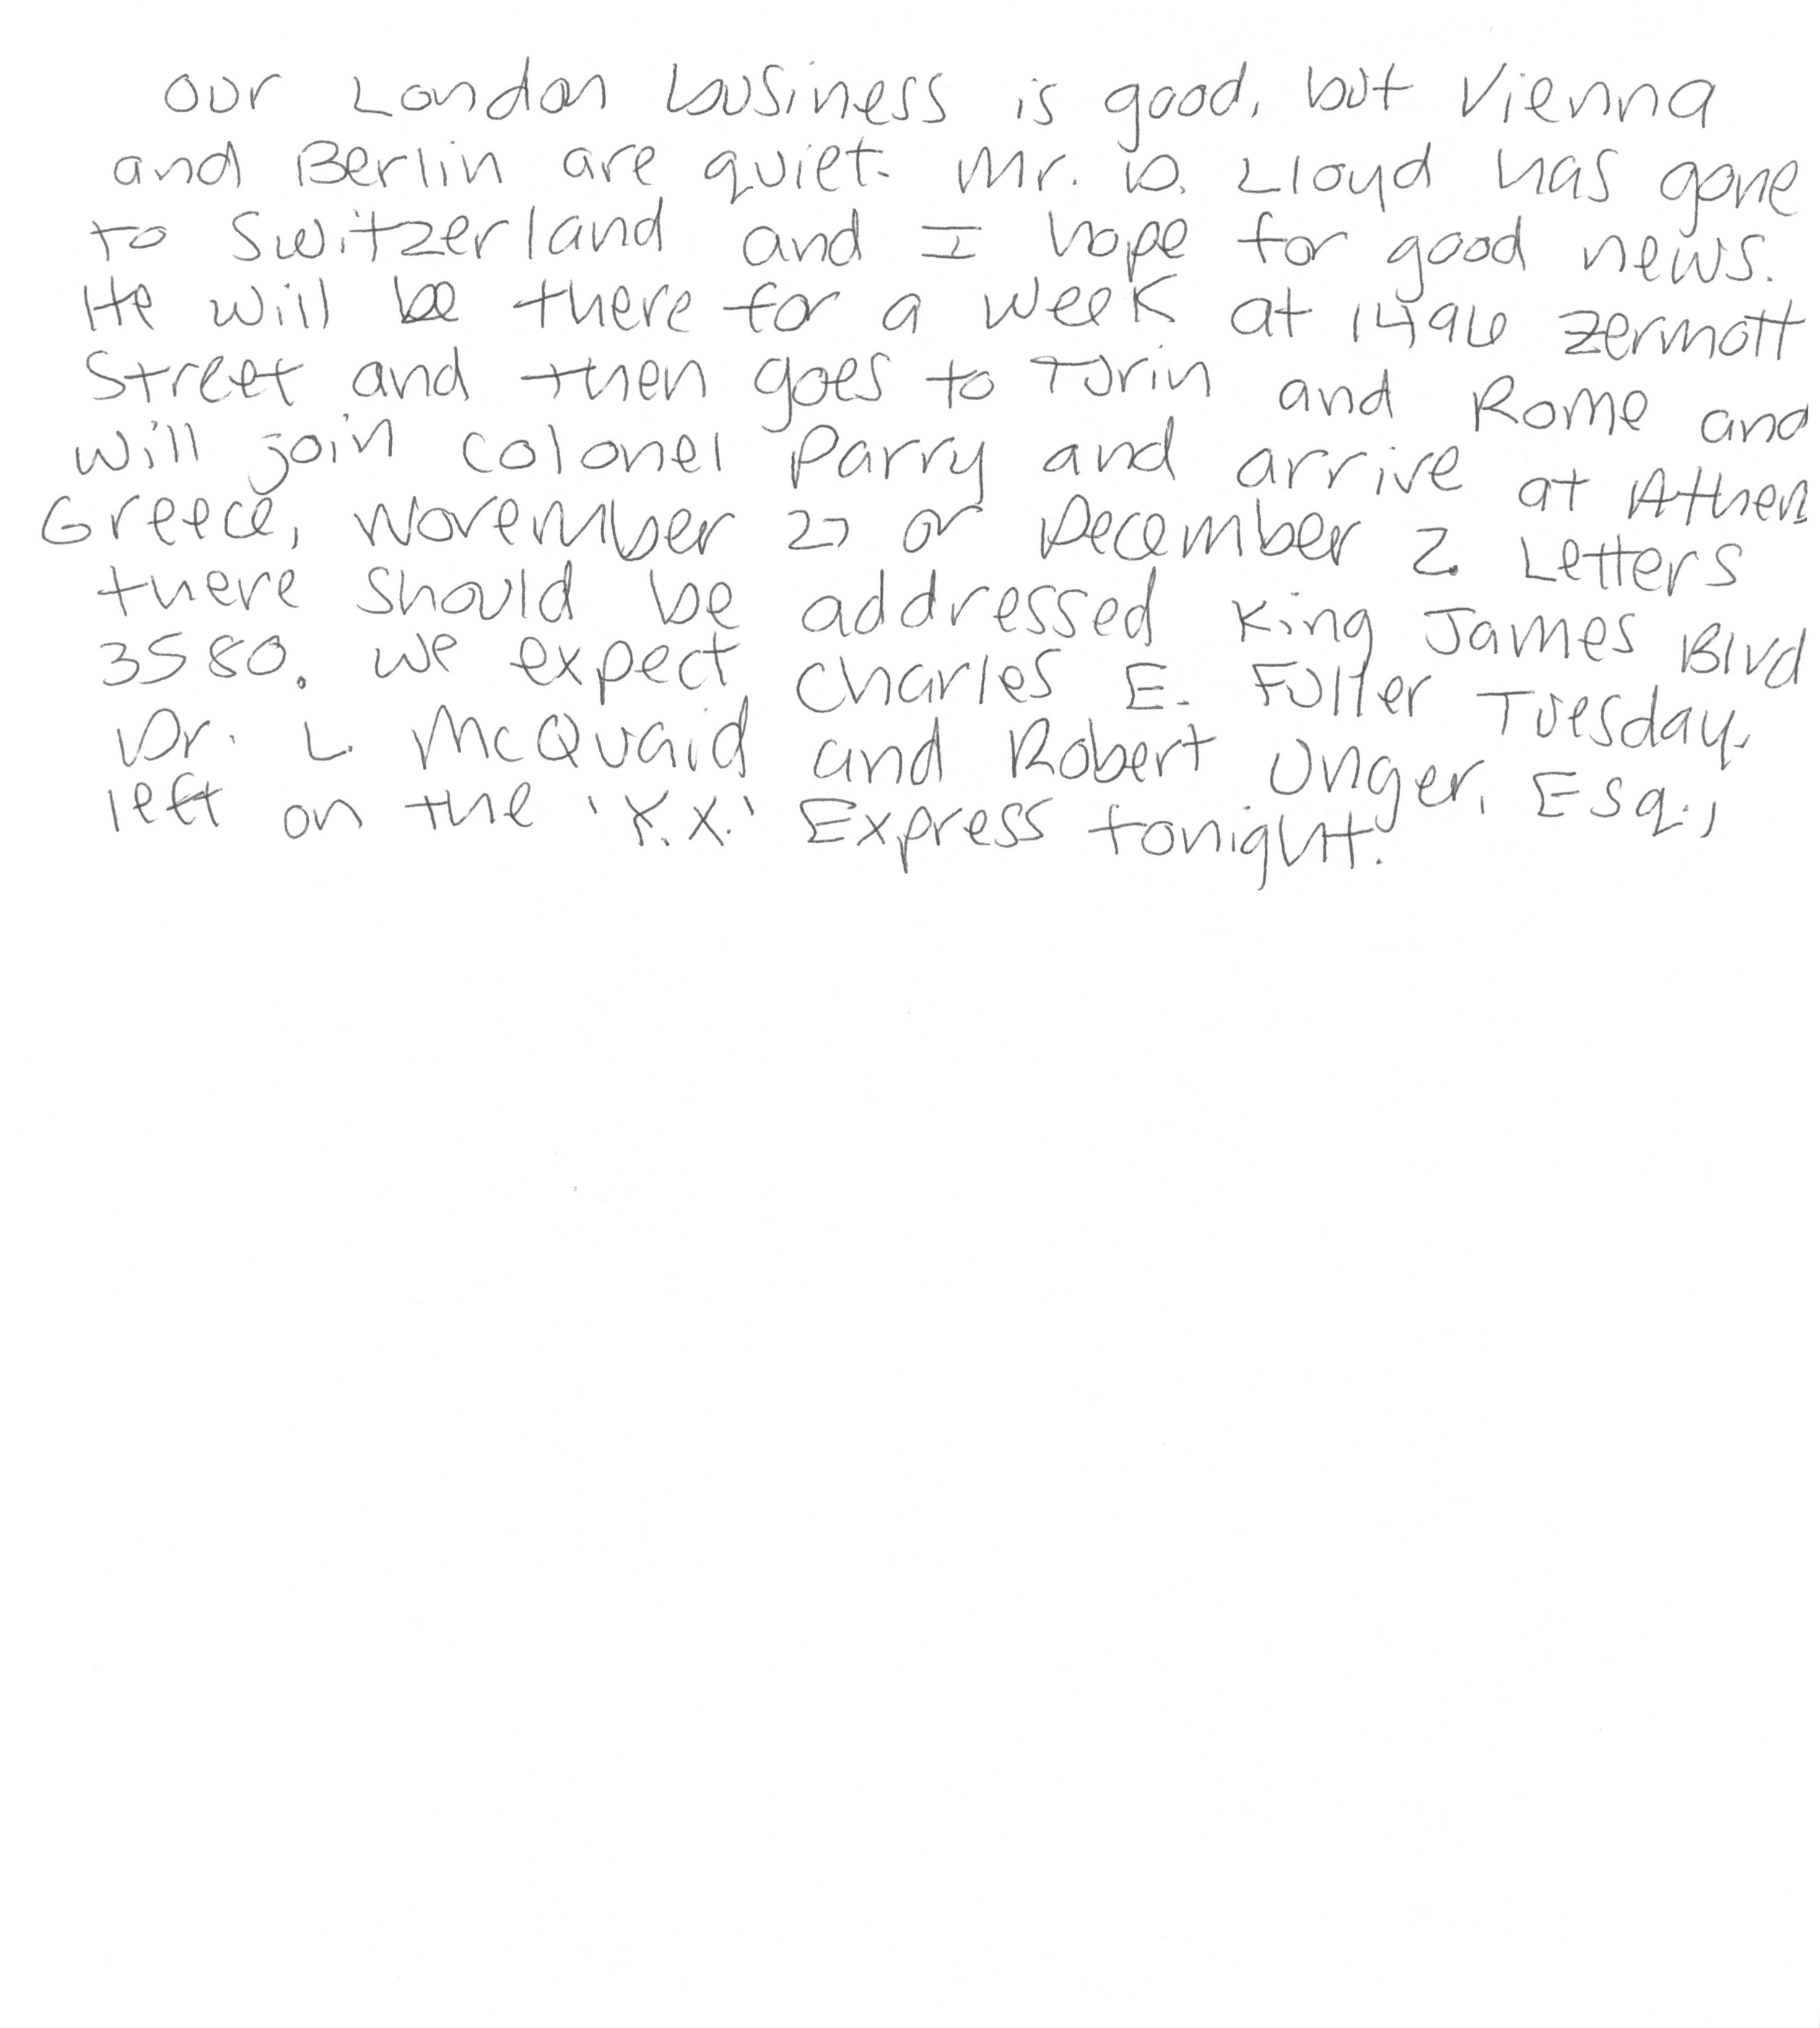 Our London business is good, but Vienna
and Berlin are quiet. Mr. D. Lloyd has gone
to Switzerland and I hope for good news.
He will be there for a week at 1496 Zermott
Street and then goes to Turin and Rome and
will join Colonel Parry and arrive at Athens
Greece, November 27 or December 2. Letters
there should be addressed King James Blvd
3580. We expect Charles E. Fuller Tuesday.
Dr. L. McQuaid and Robert Unger, Esq.,
left on the 'Y.X.' Express tonight.